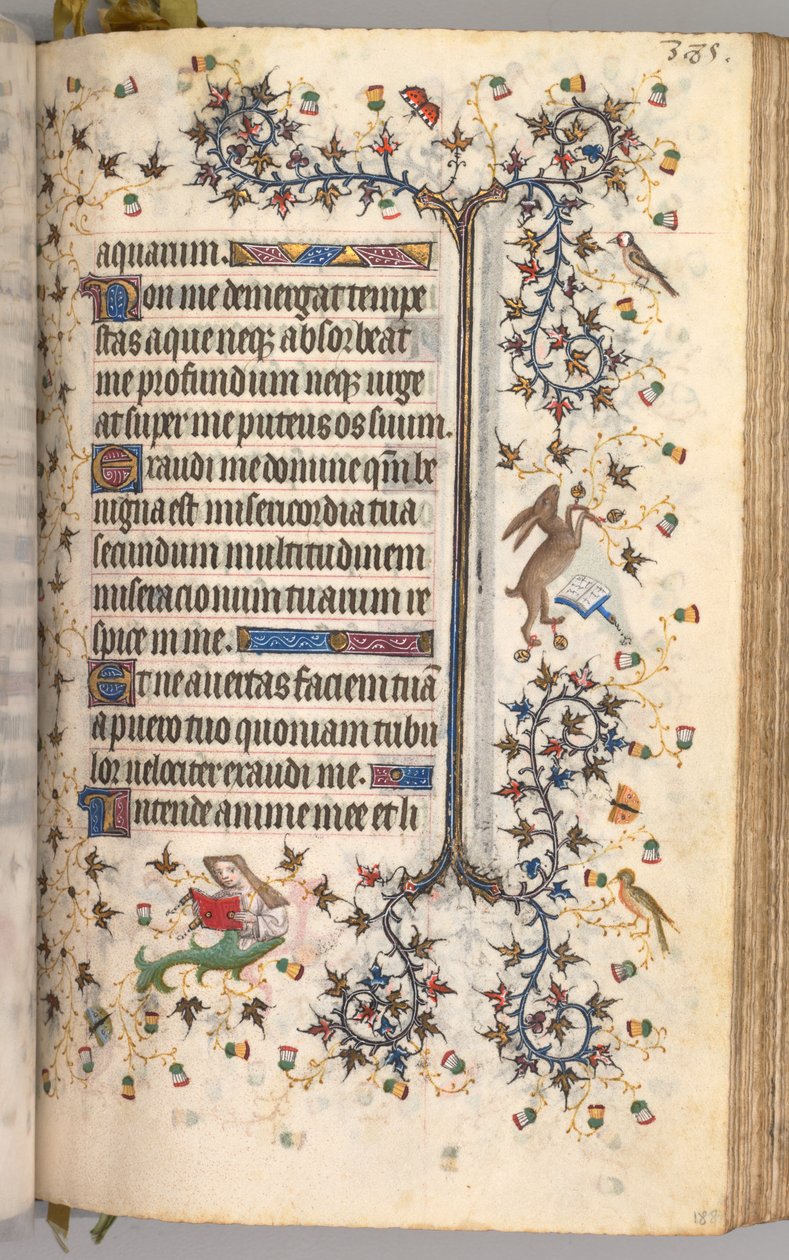 385.
aquarum.
Non me demergat tempe
stas aque neqꝫ absorbeat
me profundum neqꝫ urge
at super me puteus os suum.
Exaudi me domine qm̄ be
nigna est misericordia tua
secundum multitudinem
miseracionum tuarum re
spice in me.
Et ne avertas faciem tuā
a puero tuo quoniam tribu
lor velociter exaudi me.
Intende anime mee et li
188